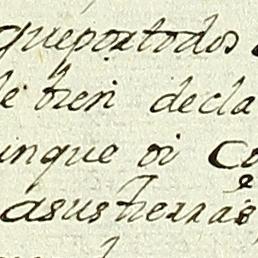 que por todos
bien decla
unque oi Co
a sus tierras